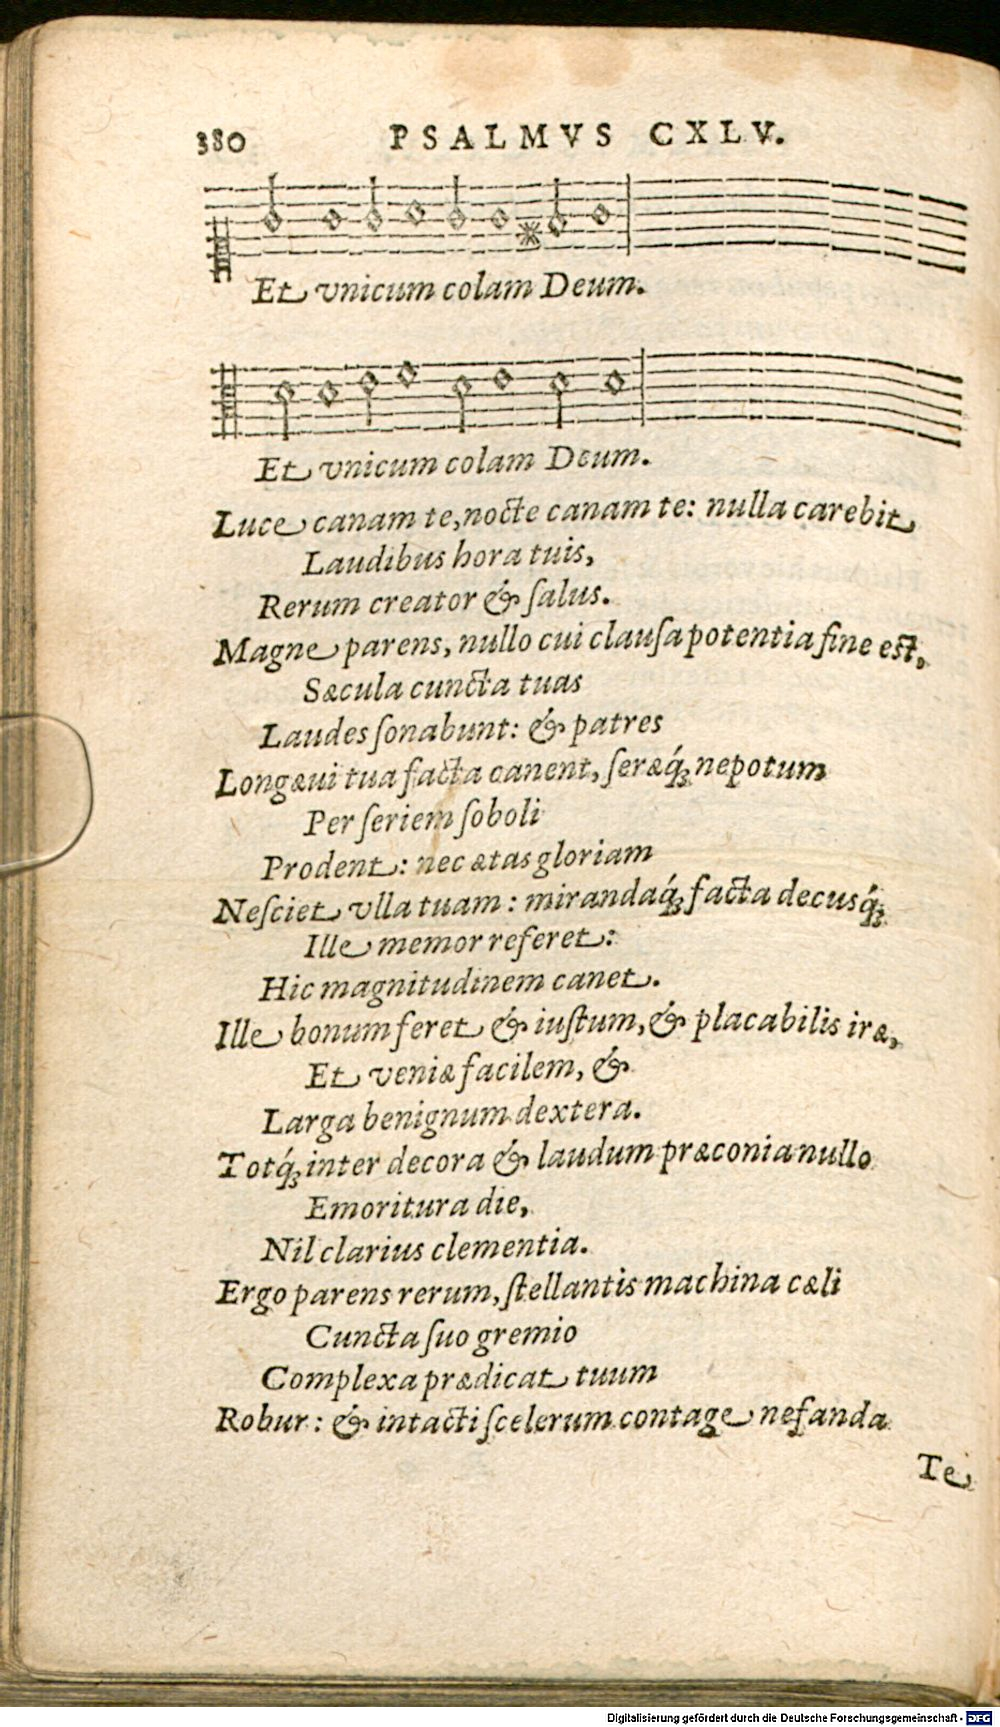 380 PSALMVS CXLV.
Et vnicum colam Deum.
Et vnicum colam Deum.
Luce canam te, nocte canam te: nulla carebit
Laudibus hora tuis,
Rerum creator & ſalus.
Magne parens, nullo cui clauſa potentia fine est,
Sæcula cuncta tuas
Laudes ſonabunt: & patres
Longæui tua facta canent, ſeræq́ꝫ nepotum
Per ſeriem ſoboli
Prodent: nec ætas gloriam
Neſciet vlla tuam: mirandaq́ꝫ facta decusq́ꝫ
Ille memor referet:
Hic magnitudinem canet.
Ille bonum feret & iuſtum, & placabilis iræ,
Et veniæ facilem, &
Larga benignum dextera.
Totq́ꝫ inter decora & laudum præconia nullo
Emoritura die,
Nil clarius clementia.
Ergo parens rerum, ſtellantis machina cæli
Cuncta ſuo gremio
Complexa prædicat tuum
Robur: & intacti ſcelerum contage nefanda
Te
Digitalisierung gefördert durch die Deutsche Forschungsgemeinschaft - DFG